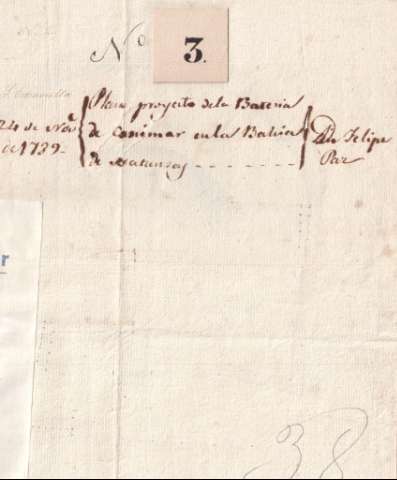 Nº 3.
24 de Nov.ᵉ
de 1739_
Plano proyecto de la Bateria
de Canimar en la Bahia
de Matanzas - - - - - -
Dn Felipe
Paz
r
38